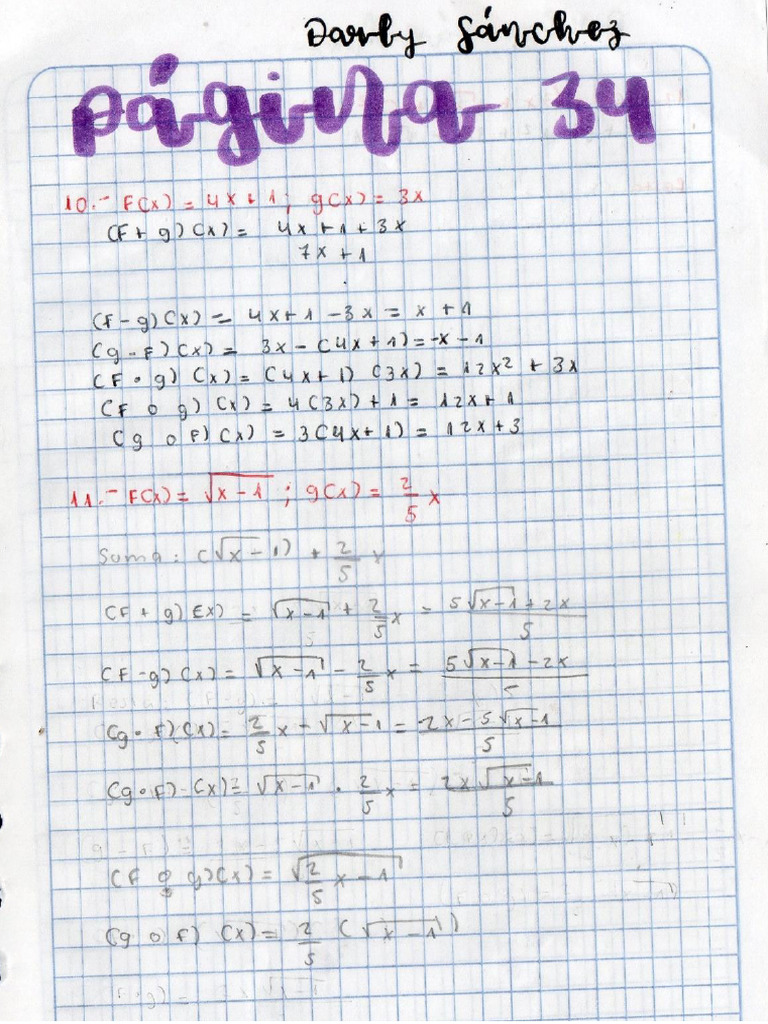 Darly Sánchez
página 34
10.- F(x) = 4x + 1 ; g(x) = 3x
(F + g) (x) = 4x + 1 + 3x
7x + 1
(F - g) (x) = 4x + 1 - 3x = x + 1
(g - F) (x) = 3x - (4x + 1) = -x - 1
(F • g) (x) = (4x + 1) (3x) = 12x² + 3x
(F o g) (x) = 4(3x) + 1 = 12x + 1
(g o F) (x) = 3(4x + 1) = 12x + 3
11.- F(x) = √(x - 1) ; g(x) = 2/5 x
Suma : (√x - 1) + 2/5 x
(F + g) (x) = √(x - 1) + 2/5 x = (5√(x - 1) + 2x)/5
(F - g) (x) = √(x - 1) - 2/5 x = (5√(x - 1) - 2x)/5
(g - F) (x) = 2/5 x - √(x - 1) = (2x - 5√(x - 1))/5
(g • F) - (x) = √(x - 1) • 2/5 x = (2x√(x - 1))/5
(F o g) (x) = √(2/5 x - 1)
(g o F) (x) = 2/5 (√(x - 1))